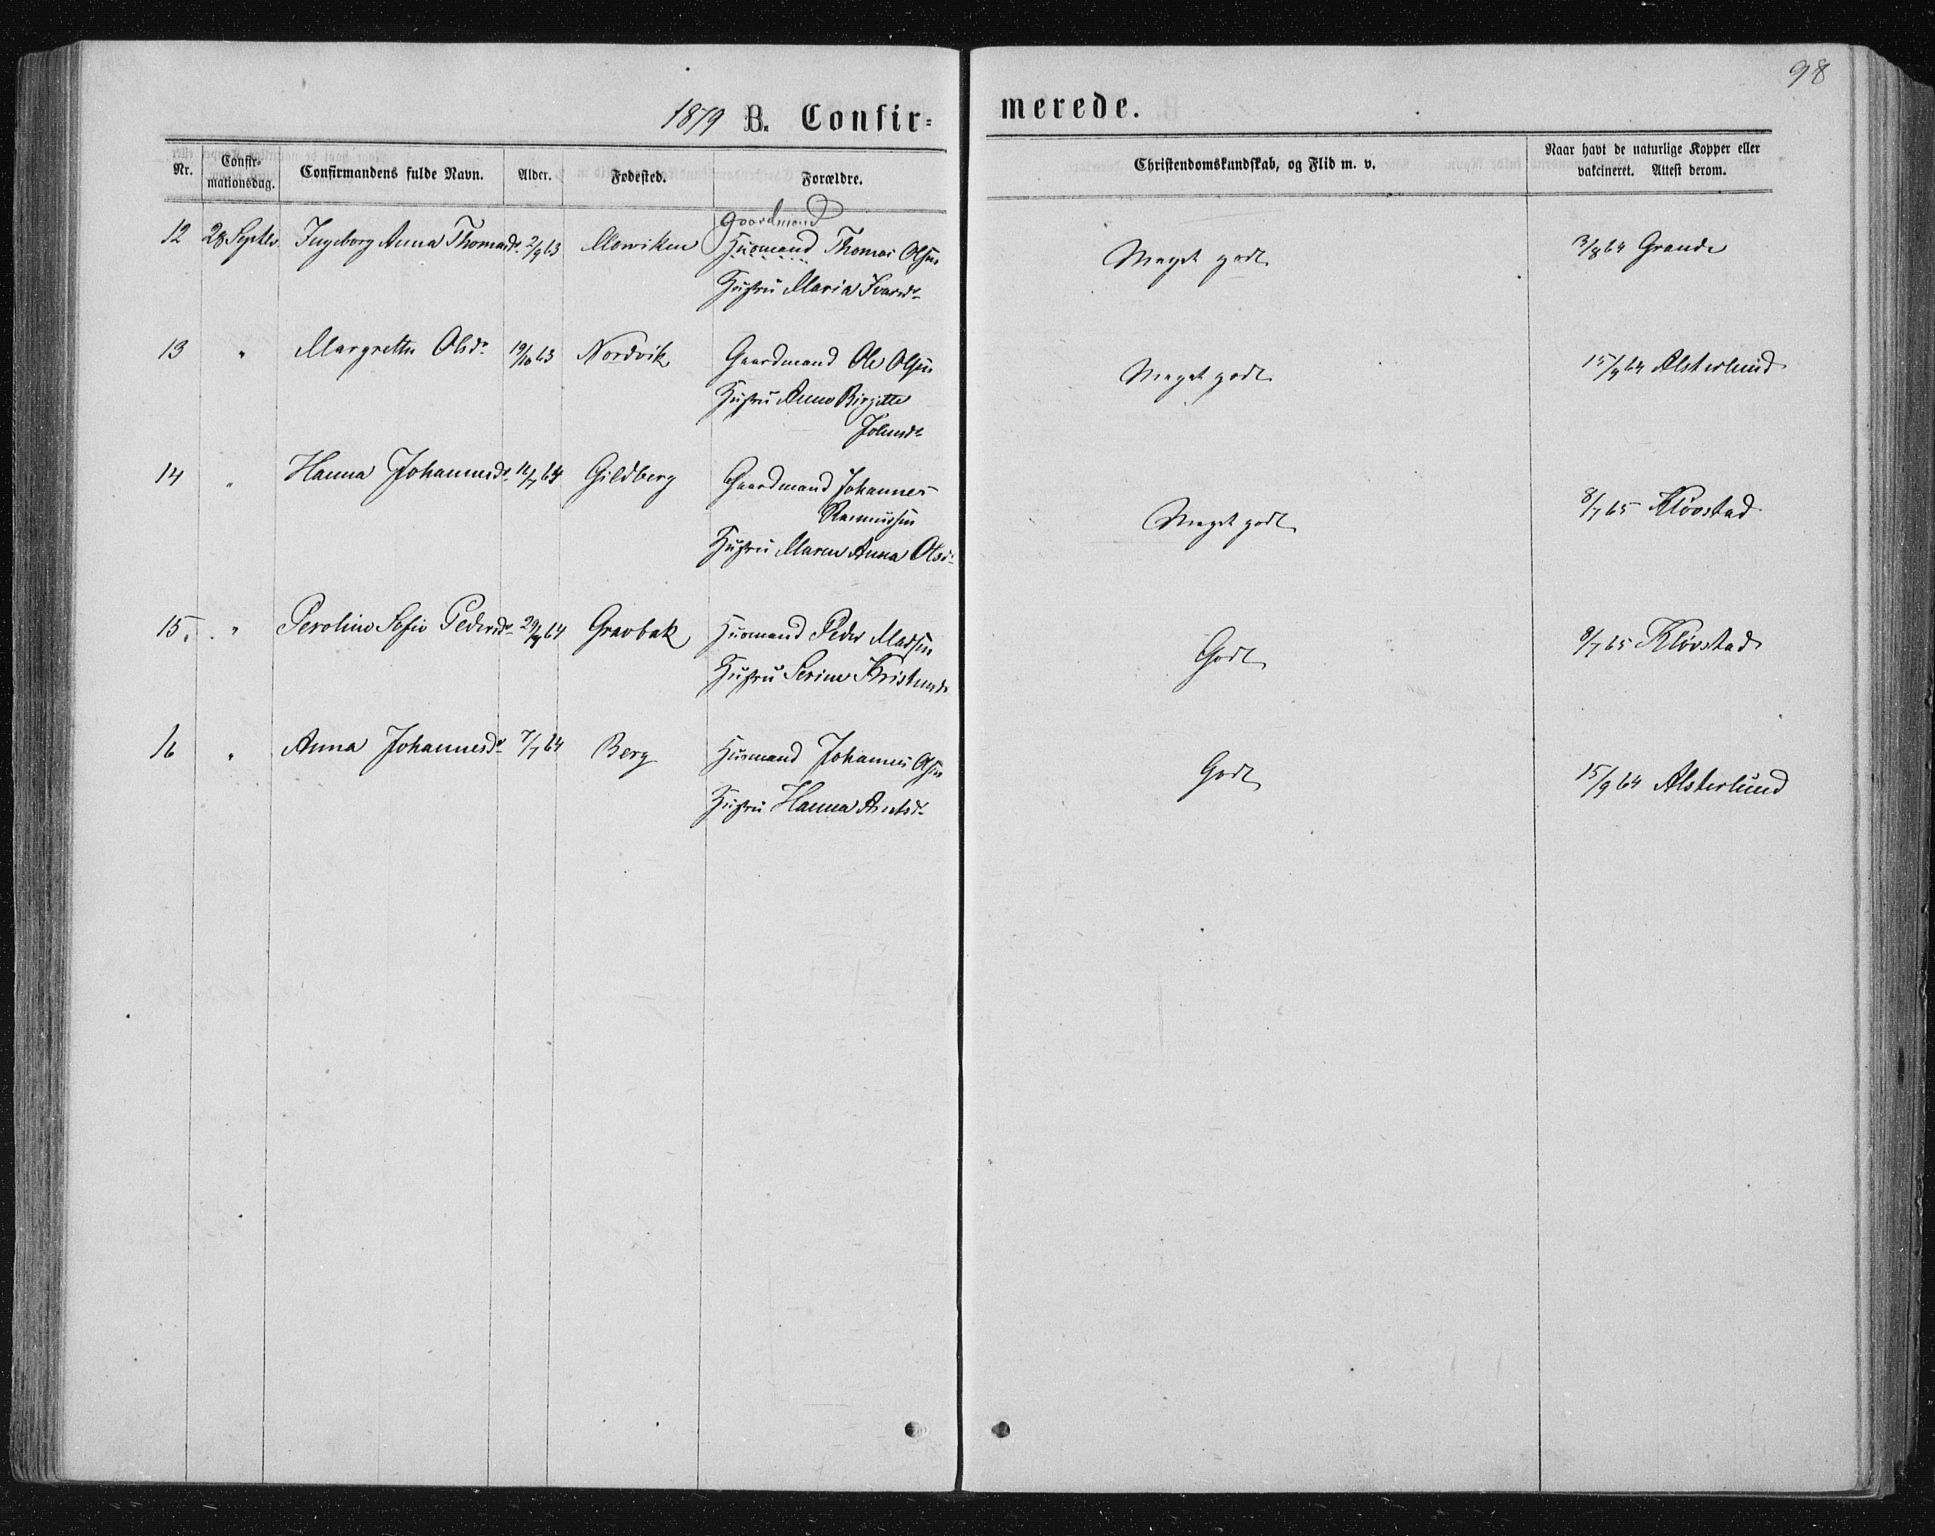 98
1879 B. Confirmerede.
Nr. Confirmationsdag. Confirmandens fulde Navn. Alder. Fødested. Forældre. Christendomskundskab, og Flid m. v. Naar havt de naturlige Kopper eller vakcineret. Attest derom.
Gaardmand
12 28 Septbr. Ingeborg Anna Thomasd. 2/9 63 Husmand Thomas Olsen Meget godt 3/8 64 Grande
Hustru Maria Ivarsd.
13 " Margrethe Olsd. 19/10 63 Nordvik Gaardmand Ole Olsen Meget godt 15/9 64 Alsterlund
Hustru Anna Birgitte
Johnsd.
14 " Hanna Johannesd. 11/7 64 Gildberg Gaardmand Johannes Meget godt 8/7 65 Kløvstad
Rasmussen
Hustru Maren Anna Olsd.
15. " Peroline Sofie Pedersd. 29/9 64 Gravbak Husmand Peder Madsen Godt 8/7 65 Kløvstad
Hustru Serine Kristensd.
16 " Anna Johannesd. 7/7 64 Berg Husmand Johannes Olsen Godt 15/9 64 Alsterlund
Hustru Hanna Arntsd.